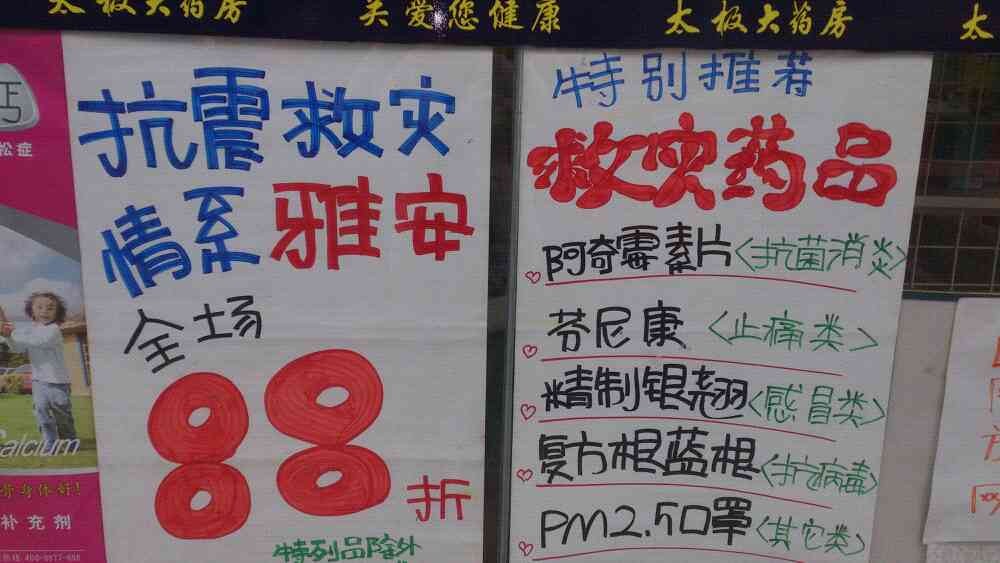 太极大药房
关爱您健康
太极大药房
太
抗震救灾
情系雅安
全场
88折
特列品除外
特别推荐
救灾药品
阿奇霉素片<抗菌消炎>
芬尼康 <止痛类>
精制银翘<感冒类>
复方根蓝根<抗病毒>
PM2.5口罩<其它类>
钙
松症
alcium
骨身体好!
补充剂